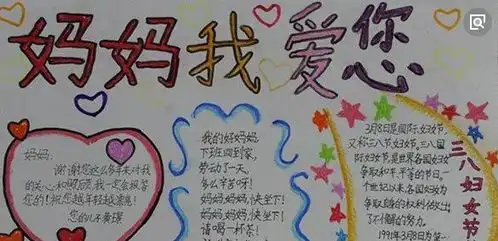 妈妈我爱您
妈妈:
谢谢您这么多年来对我
的关心和照顾,我一定会报答
您的!祝您越年轻越漂亮!
您的儿子黄璟
我的好妈妈,
下班回到家,
劳动了一天,
多么辛苦呀!
妈妈妈妈,快坐下!
妈妈妈妈,快坐下!
请喝一杯茶!
3月8日是国际妇女节,
又称三八节妇女节。三八国
际妇女节是世界各国妇女
争取和平、平等的节日。一
个世纪以来,各国妇女为
争取自身的权利做出
了不懈的努力。
1991年3月8日为第一
三八妇女节